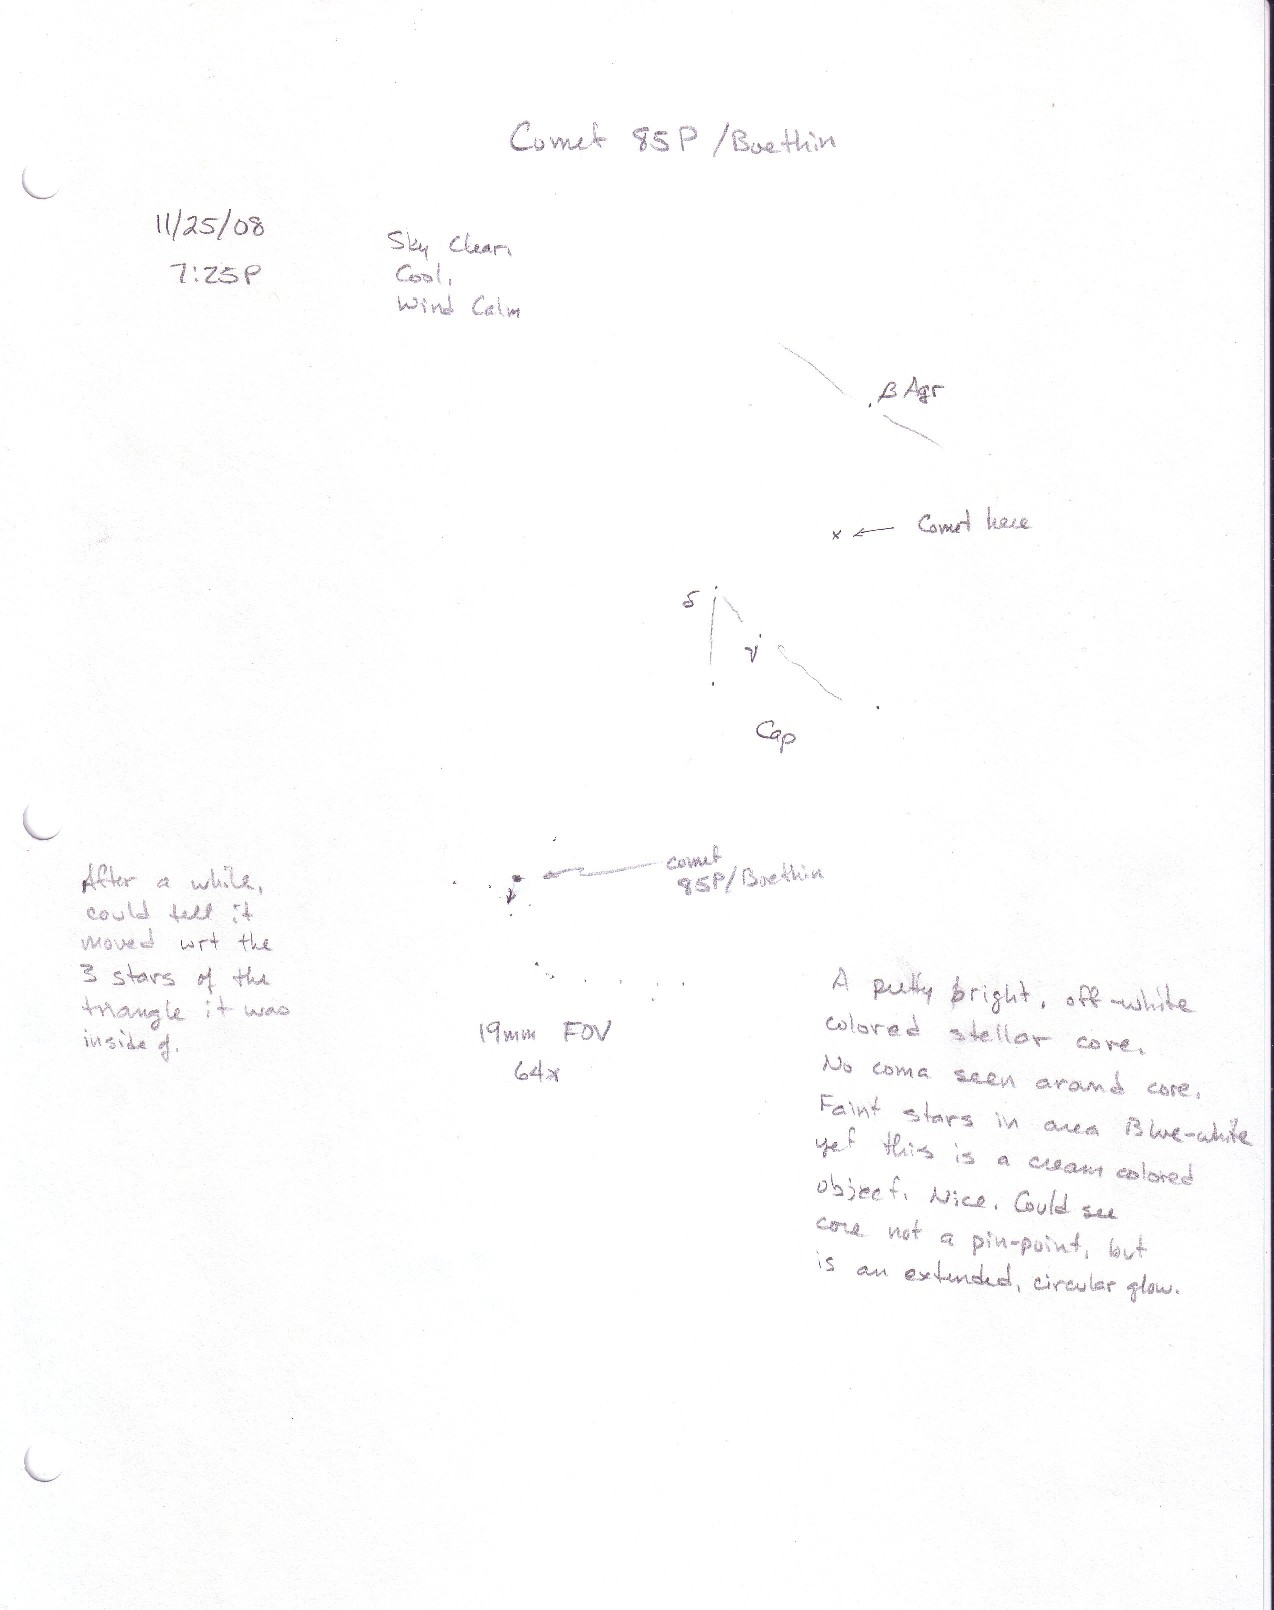 Comet 85P/Boethin
11/25/08
7:25P
Sky Clear,
Cool,
Wind Calm
β Aqr
Comet here
δ
γ
Cap
comet
85P/Boethin
After a while,
could tell it
moved wrt the
3 stars of the
triangle it was
inside of.
19mm FOV
64x
A pretty bright, off-white
colored stellar core.
No coma seen around core.
Faint stars in area Blue-white
yet this is a cream colored
object. Nice. Could see
core not a pin-point, but
is an extended, circular glow.